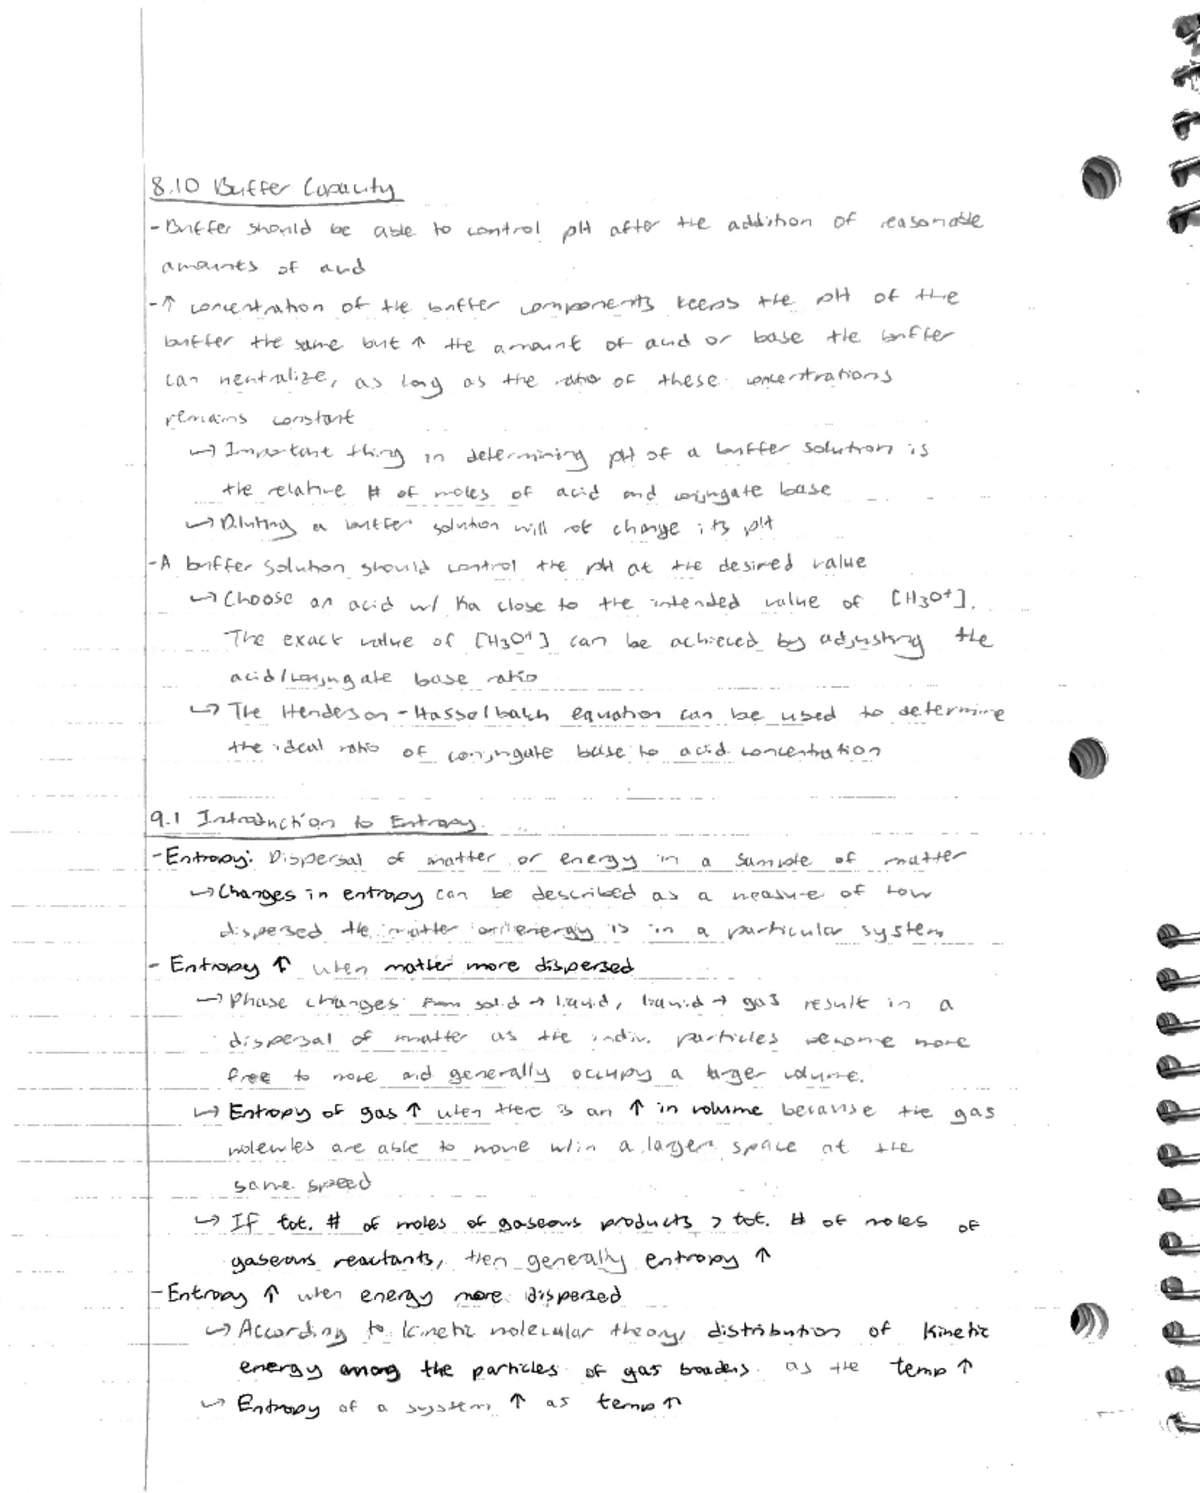 8.10 Buffer Capacity
- Buffer should be able to control pH after the addition of reasonable
amounts of acid
- ↑ concentration of the buffer components keeps the pH of the
buffer the same but ↑ the amount of acid or base the buffer
can neutralize, as long as the ratio of these concentrations
remains constant
↳ Important thing in determining pH of a buffer solution is
the relative # of moles of acid and conjugate base
↳ Diluting a buffer solution will not change its pH
- A buffer solution should control the pH at the desired value
↳ Choose an acid w/ Ka close to the intended value of [H3O+].
The exact value of [H3O+] can be achieved by adjusting the
acid/conjugate base ratio
↳ The Henderson-Hasselbalch equation can be used to determine
the ideal ratio of conjugate base to acid concentration
9.1 Introduction to Entropy
- Entropy: Dispersal of matter or energy in a sample of matter
↳ Changes in entropy can be described as a measure of how
dispersed the matter or energy is in a particular system
- Entropy ↑ when matter more dispersed
↳ Phase changes from solid → liquid, liquid → gas result in a
dispersal of matter as the indiv. particles become more
free to move and generally occupy a larger volume.
↳ Entropy of gas ↑ when there is an ↑ in volume because the gas
molecules are able to move w/in a larger space at the
same speed
↳ If tot. # of moles of gaseous products > tot. # of moles of
gaseous reactants, then generally entropy ↑
- Entropy ↑ when energy more dispersed
↳ According to kinetic molecular theory, distribution of kinetic
energy among the particles of gas broadens as the temp ↑
↳ Entropy of a system ↑ as temp ↑